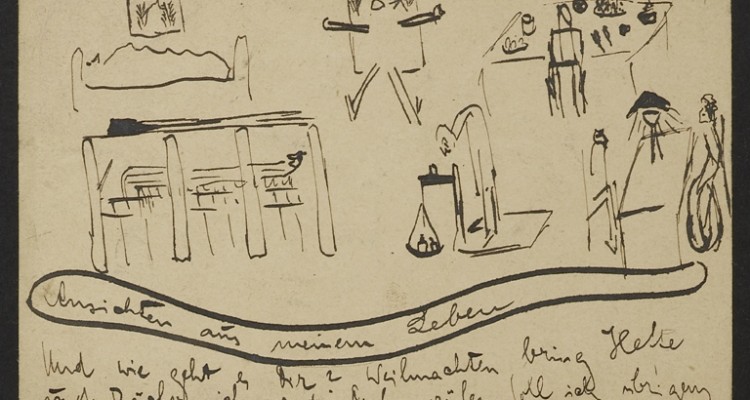 Ansichten aus meinem Leben
Und wie geht es Dir? Weihnachten bring Hefte
soll ich übrigens